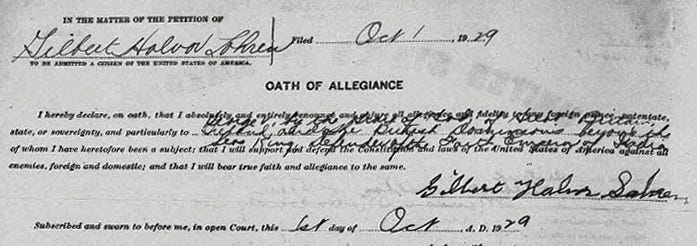 IN THE MATTER OF THE PETITION OF
Gilbert Halvor Lohren Filed Oct 1 1929
TO BE ADMITTED A CITIZEN OF THE UNITED STATES OF AMERICA.
OATH OF ALLEGIANCE
I hereby declare, on oath, that I absolutely and entirely renounce and abjure all allegiance and fidelity to any foreign prince, potentate,
George V by the grace of God of Great Britain,
state, or sovereignty, and particularly to Ireland and the British Dominions beyond the
Seas King, Defender of the Faith Emperor of India
of whom I have heretofore been a subject; that I will support and defend the Constitution and laws of the United States of America against all
enemies, foreign and domestic; and that I will bear true faith and allegiance to the same.
Gilbert Halvor
Subscribed and sworn to before me, in open Court, this 1st day of Oct A. D. 1929